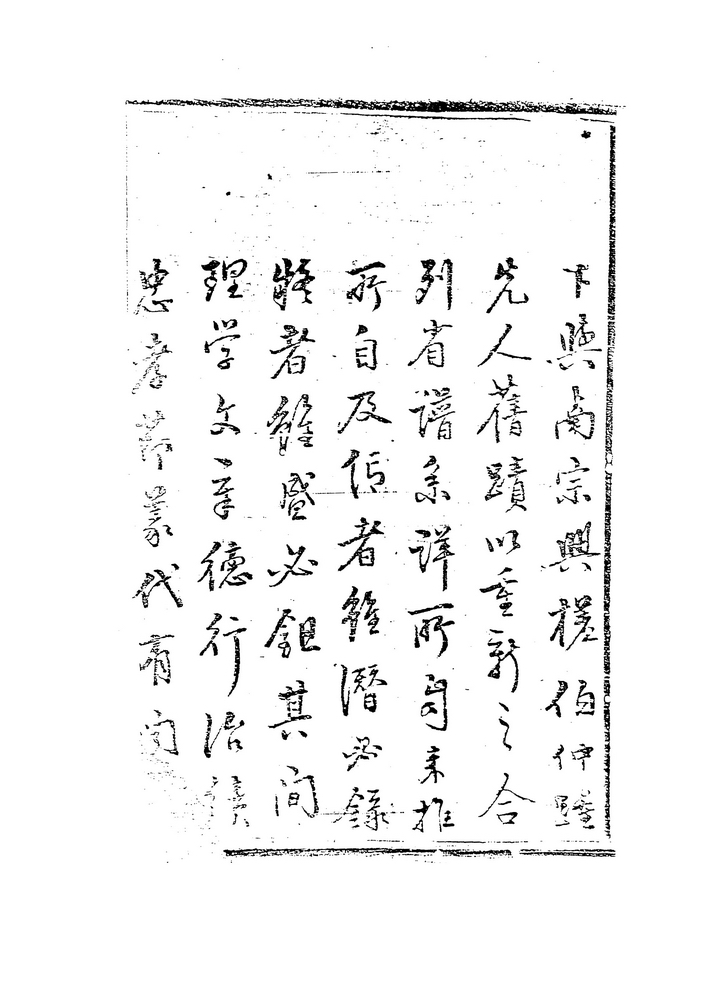 下與南宗興槎伯仲踵
先人舊蹟以重新之合
列省譜系詳所自來推
所自及信者雖潛必錄
疑者雖盛必鉏其间
理学文章德行治績
忠孝節義代有闻